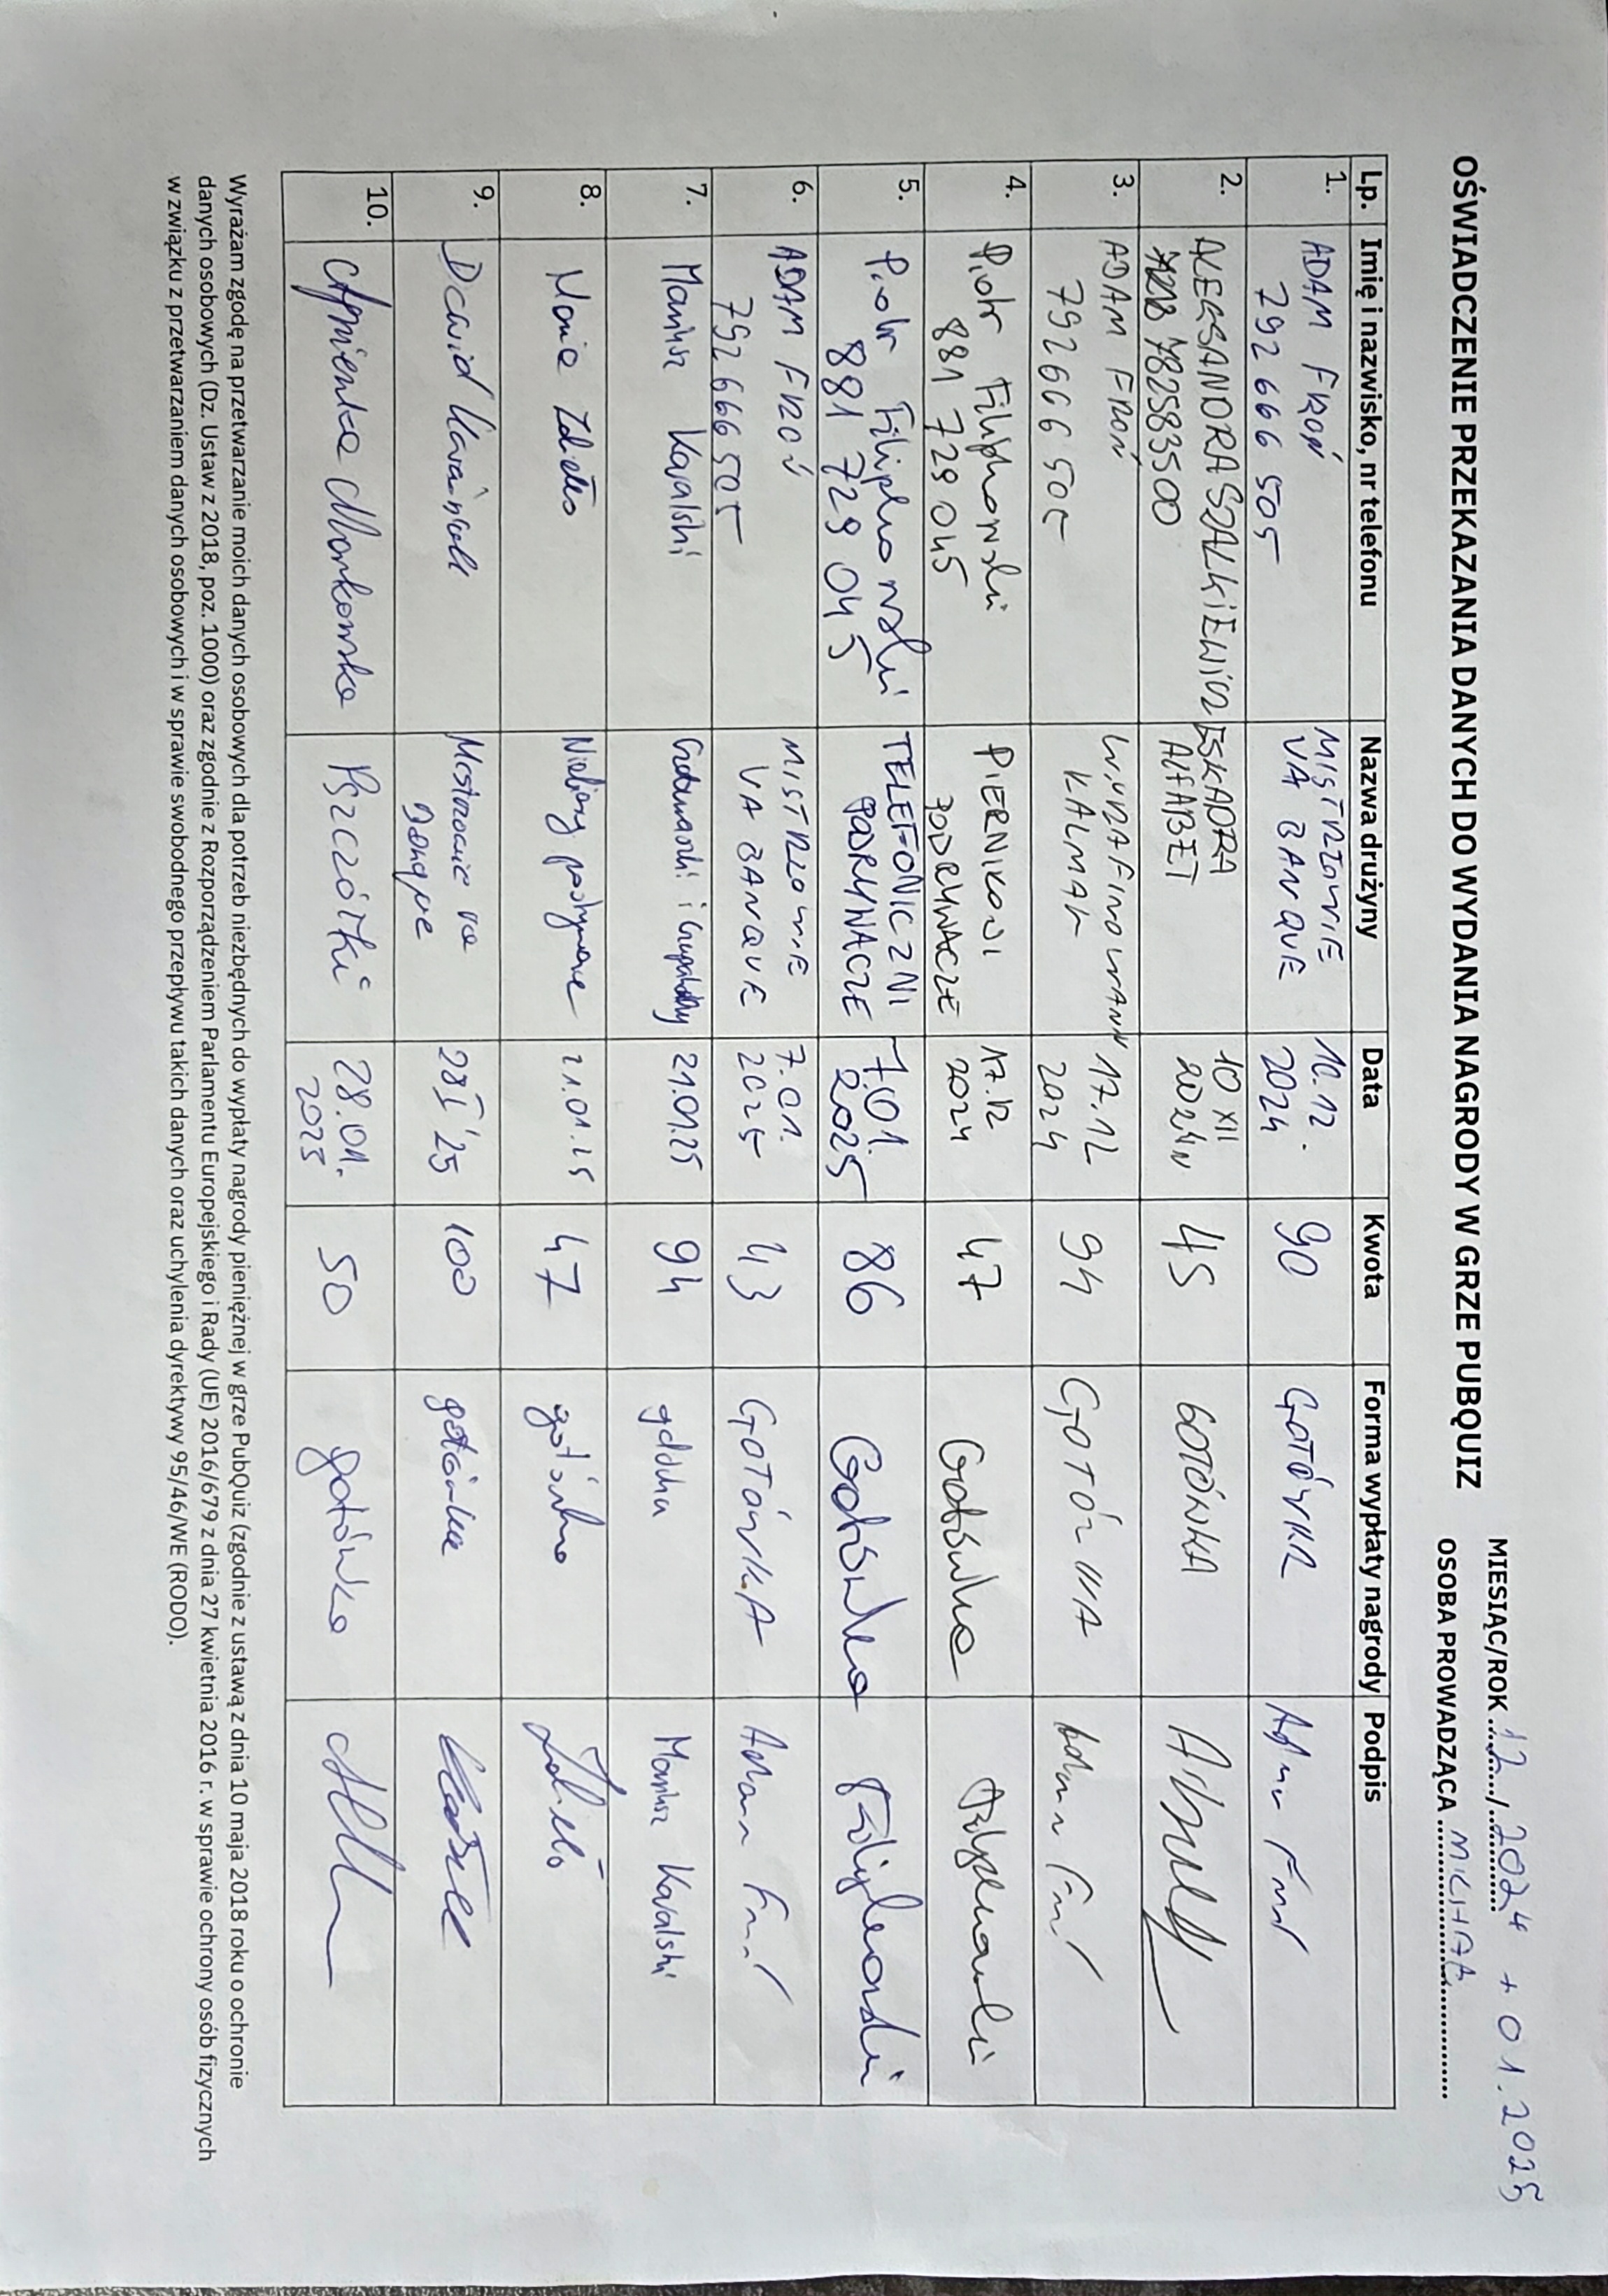 OŚWIADCZENIE PRZEKAZANIA DANYCH DO WYDANIA NAGRODY W GRZE PUBQUIZ
MIESIĄC/ROK 12 / 2024 + 01.2025
OSOBA PROWADZĄCA MICHAŁ
Lp. Imię i nazwisko, nr telefonu Nazwa drużyny Data Kwota Forma wypłaty nagrody Podpis
1. ADAM FROŃ MISTRZOWIE 10.12. 90 GOTÓWKA Adam Froń
792 666 505 VA BANQUE 2024
2. ALEKSANDRA SZALKIEWICZ ESKADRA 10 XII 45 GOTÓWKA
782583500 ALFABET 2024
3. ADAM FROŃ WYRAFINOWANY 17.12 94 GOTÓWKA Adam Froń
792666 505 KALMAR 2024
4. Piotr Filipkowski PIERNIKOWI 17.12 47 Gotówka Filipkowski
881 729 045 PODRYWACZE 2024
5. Piotr Filipkowski TELEFONICZNI 7.01. 86 Gotówka Filipkowski
881 729 045 PODRYWACZE 2025
6. ADAM FROŃ MISTRZOWIE 7.01. 43 GOTÓWKA Adam Froń
792666505 VA BANQUE 2025
7. Mariusz Kowalski i 21.01.25 94 gotówka Mariusz Kowalski
8. 21.01.25 47 gotówka
9. Dawid Mistrzowie va 28 I '25 100 gotówka
Banque
10. Agnieszka Mańkowska Pszczółki 28.01. 50 gotówka
2025
Wyrażam zgodę na przetwarzanie moich danych osobowych dla potrzeb niezbędnych do wypłaty nagrody pieniężnej w grze PubQuiz (zgodnie z ustawą z dnia 10 maja 2018 roku o ochronie
danych osobowych (Dz. Ustaw z 2018, poz. 1000) oraz zgodnie z Rozporządzeniem Parlamentu Europejskiego i Rady (UE) 2016/679 z dnia 27 kwietnia 2016 r. w sprawie ochrony osób fizycznych
w związku z przetwarzaniem danych osobowych i w sprawie swobodnego przepływu takich danych oraz uchylenia dyrektywy 95/46/WE (RODO).